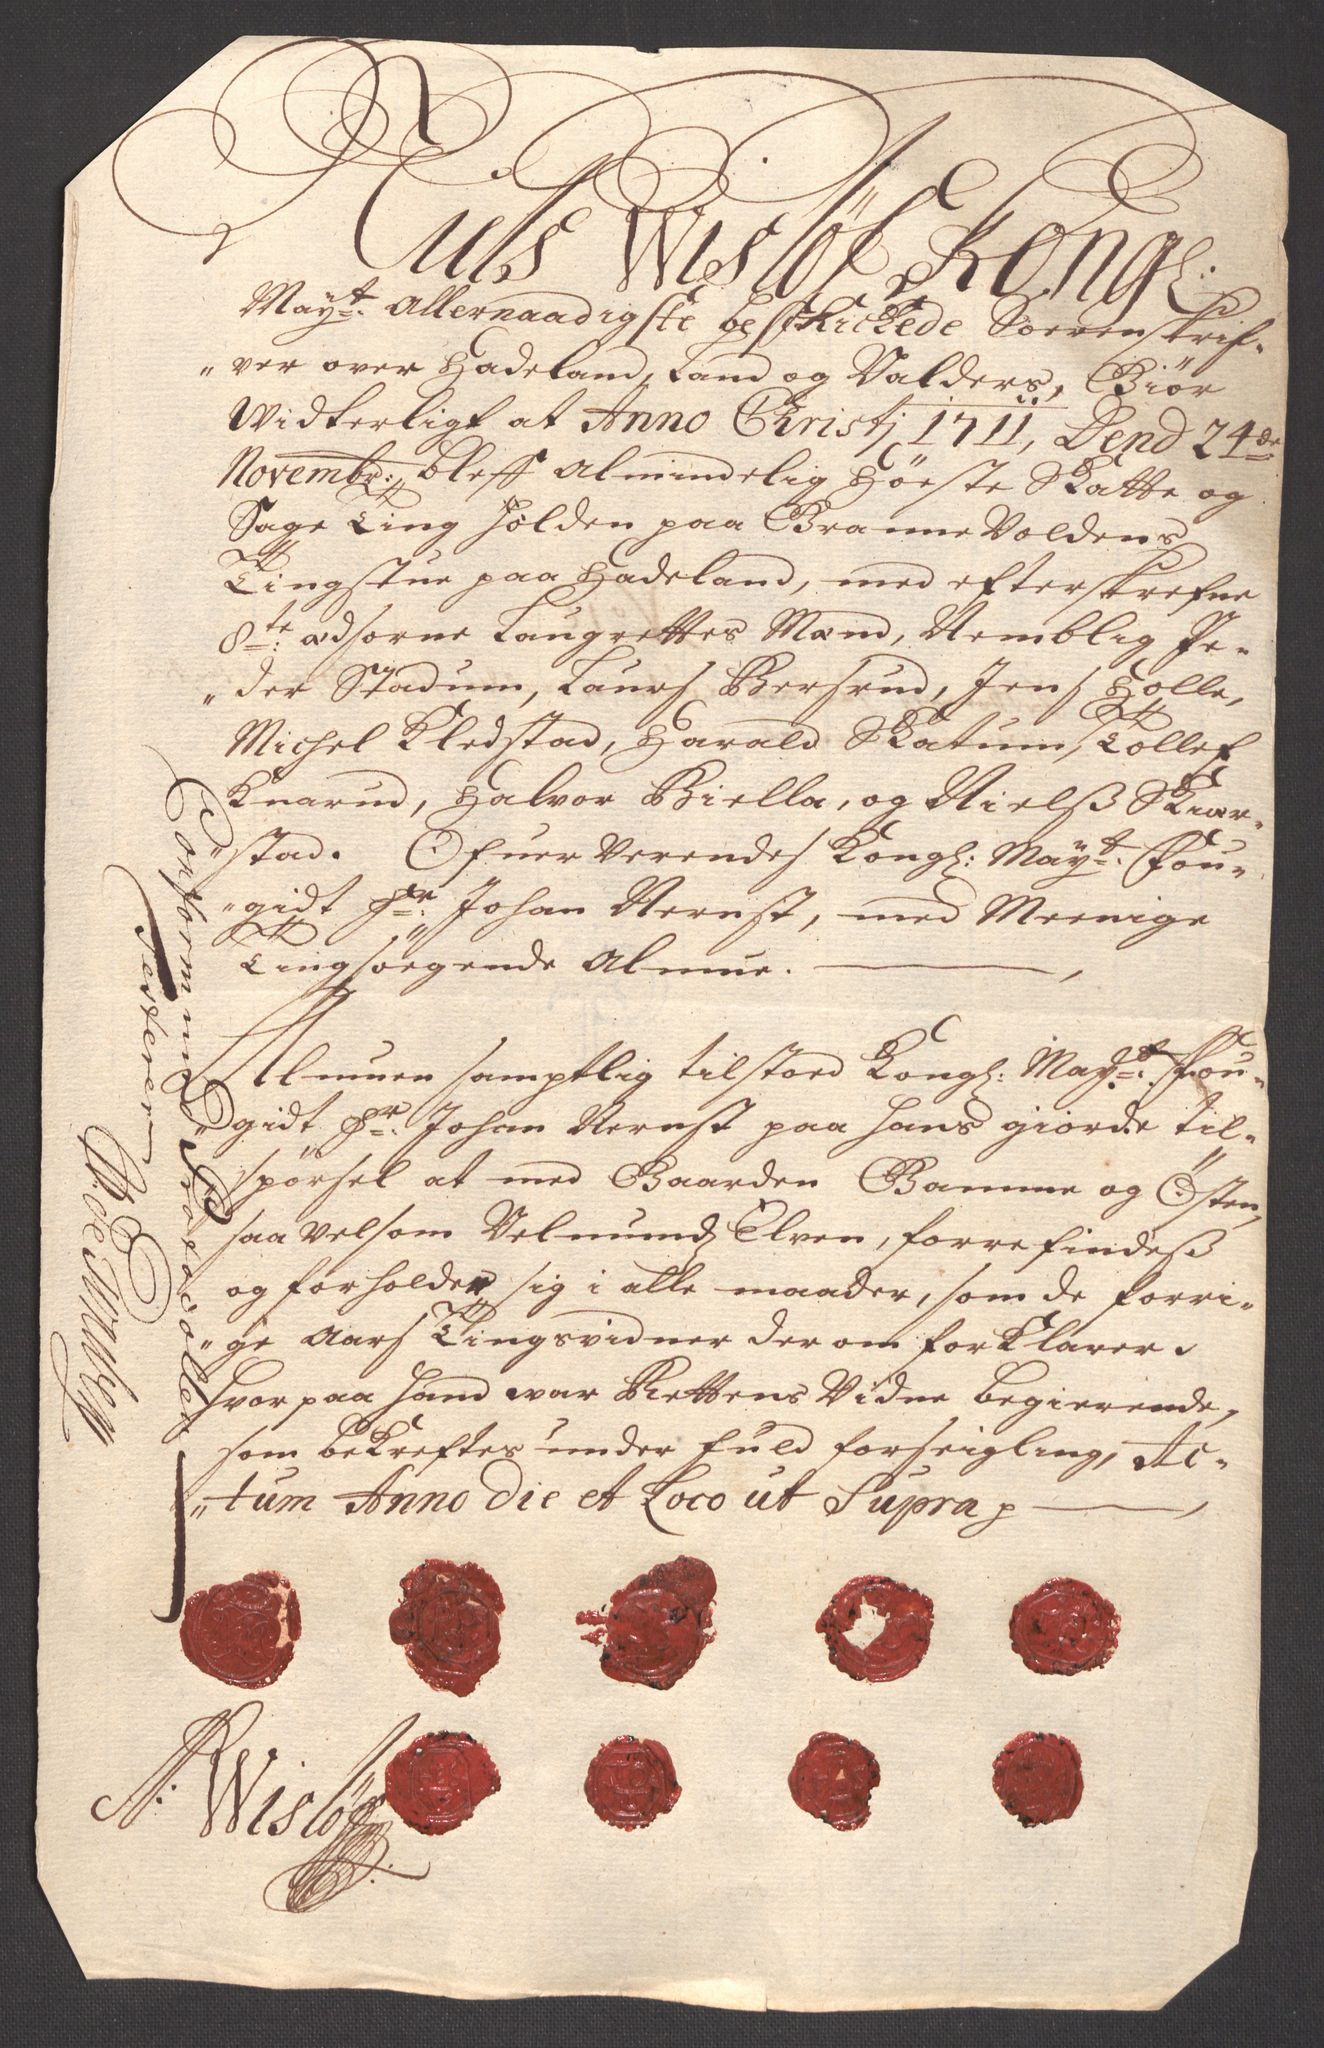 Nils Wislöf Kongl:
Mayt: Allernaadigste beskickede Soerenskrif-
"ver over Hadeland, Land og Valders, Giör
Widterligt at Anno Christj 1711, Dend 24de
Novembr: bleff Almindelig Höeste Skatte og
Sage Ting holden paa GranneVoldens
Tingstue paa Hadeland, med efterskrefne
8te: ædsorne Laugrettes Mænd, Nemblig Pe-
"der Stadum, Laurs Bersrud, Jens Holle,
Michel Kledstad, Harald Skatum, Tollef
Knarud, Halvor Biella, og Nielß Skiær-
"stad. Ofuerverendes Kongl: Mayt: Fou-
"gidt Hr: Johan Nernst, med Meenige
Tingsöegende Almue.
Almuen samptlig tilstoed Kongl: Mayts: Fou-
"gidt Hr: Johan Nernst paa hans giorde til-
spörsel at med Gaarden Gamme og Östen,
saavelsom Velmunds Elven, forrefindeß
og forholder sig i alle maader, som de forri-
"ge Aars Tingsvidner derom forklarer.
hvorpaa hand war Rettens Vidne begierende,
som bekreftes under fuld forseigling, Ac-
"tum Anno die et Loco ut Supra p
N: Wislöf
Conform med Protocollen
Testerer